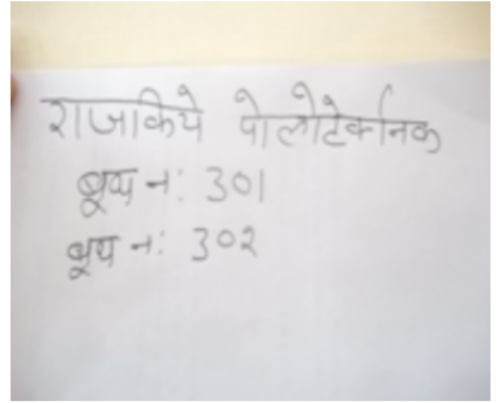 राजकिये पोलोटेर्क्नानक
बूथ न: 301
बूथ न: 302